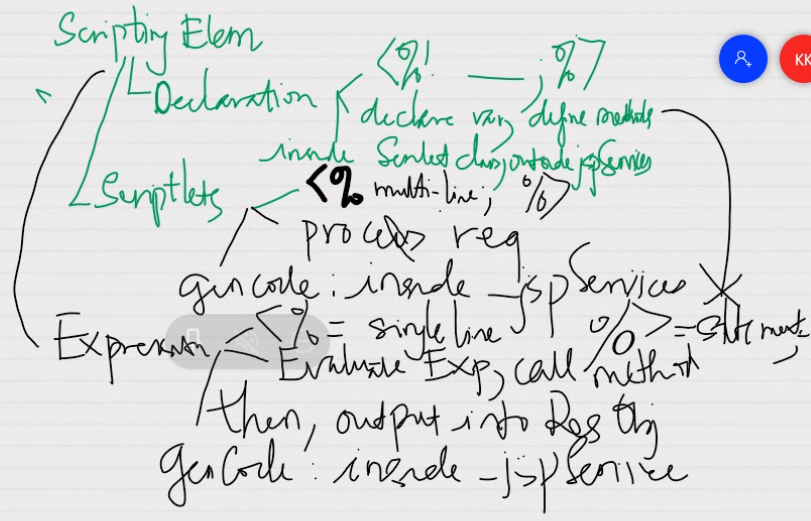 Scripting Elem
KK
Declaration <%! ; %>
declare var, define methods
inside Servlet class, outside jspServices
Scriptlets <% multi-line; %>
process req
gen code: inside _jspServices
Expression <%= single line %> = statement;
Evaluate Exp, call method
then, output into Res Obj
gen Code: inside _jspService